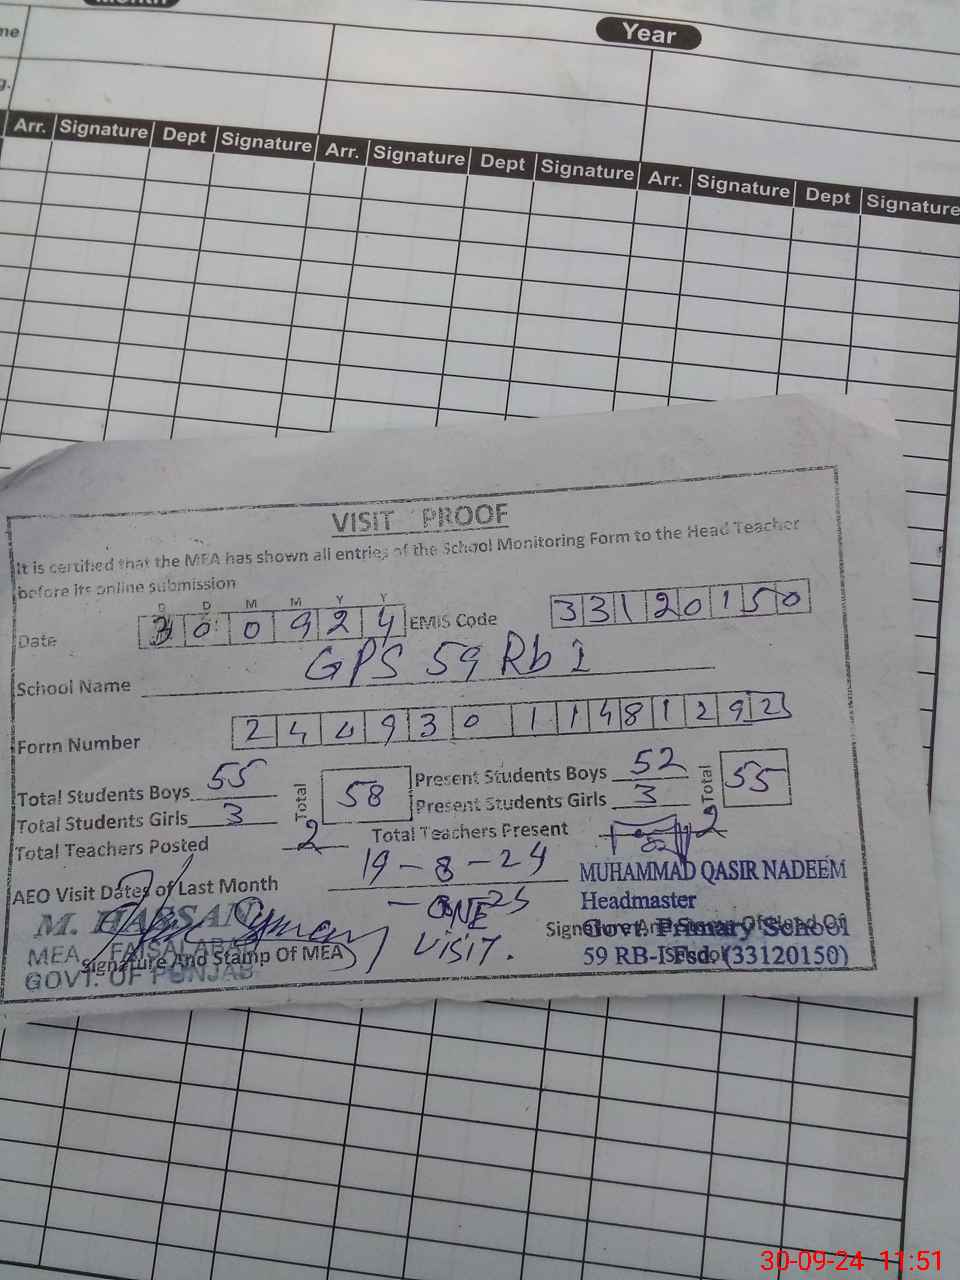 Year
Arr. Signature Dept Signature Arr. Signature Dept Signature Arr. Signature Dept Signature
VISIT PROOF
It is certified that the MEA has shown all entries of the School Monitoring Form to the Head Teacher
before its online submission
D D M M Y Y
Date 30 09 24 EMIS Code 33120150
School Name GPS 59 Rb I
Form Number 24493011481292
Total Students Boys 55 Total 58 Present Students Boys 52 Total 55
Total Students Girls 3 Present Students Girls 3
Total Teachers Posted 2 Total Teachers Present 2
AEO Visit Dates of Last Month 19-8-24
ONE
VISIT.
M. HASSAN
MEA, FAISALABAD
GOVT. OF PUNJAB
Signature And Stamp Of MEA
MUHAMMAD QASIR NADEEM
Headmaster
Govt. Primary School
59 RB-I Fsd. (33120150)
Signature And Stamp Of Head Of
School
30-09-24 11:51